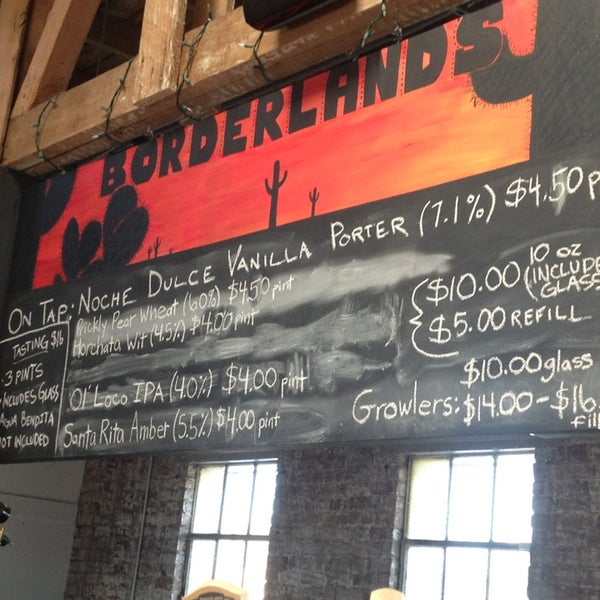 BORDERLANDS
ON TAP: NOCHE DULCE VANILLA PORTER (7.1%) $4.50 p
Prickly Pear Wheat (6.0%) $4.50 pint
Horchata Wit (4.5%) $4.00 pint
Ol' Loco IPA (4.0%) $4.00 pint
Santa Rita Amber (5.5%) $4.00 pint
TASTING $16
·3 PINTS
INCLUDES GLASS
AGUA BENDITA
NOT INCLUDED
$10.00 10 oz
(INCLUDE
GLASS
$5.00 REFILL
$10.00 glass
Growlers: $14.00-$16.
fill